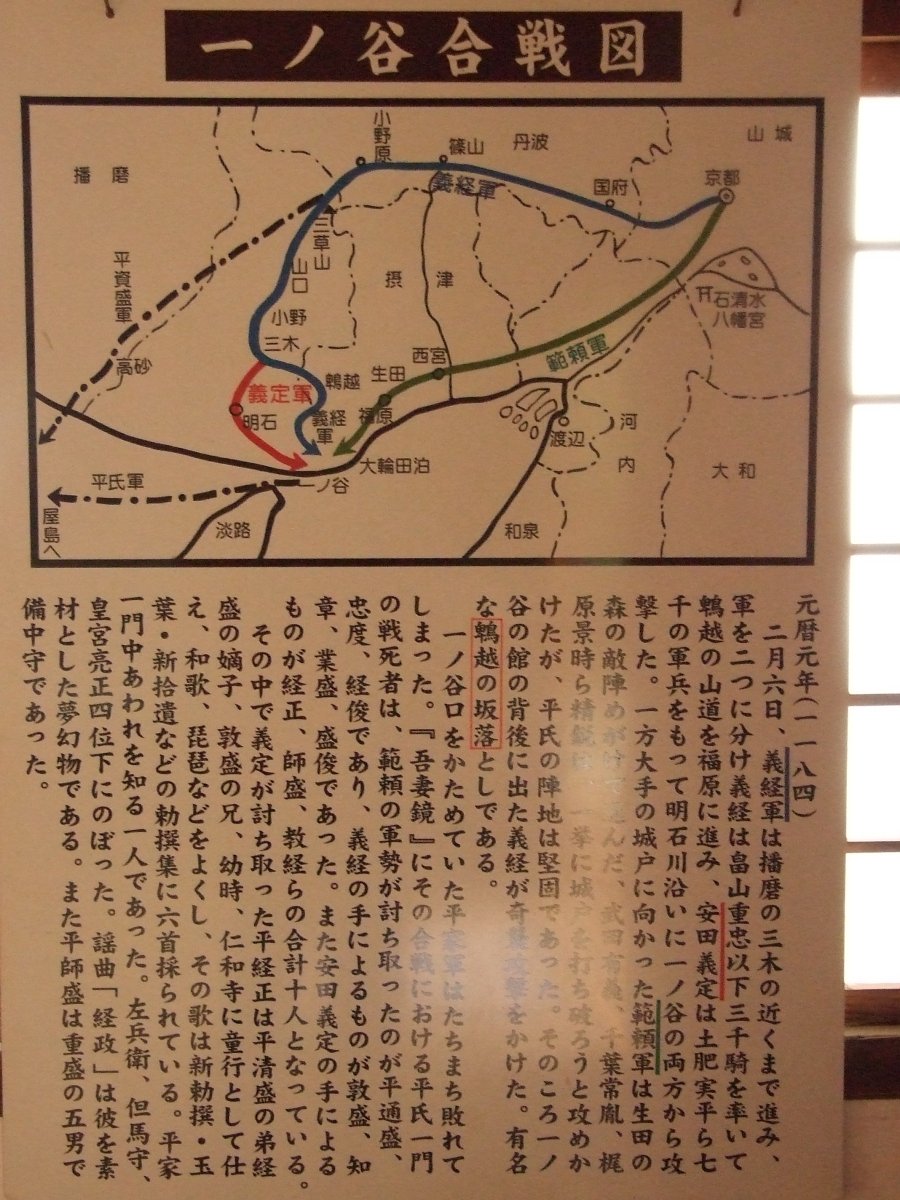 一ノ谷合戦図
小野原
篠山
丹波
山城
播磨
義経軍
国府
京都
三草山
平資盛軍
山口
摂津
石清水八幡宮
小野
三木
高砂
西宮
範頼軍
鵯越
生田
義定軍
福原
明石
義経軍
渡辺
河内
大和
大輪田泊
平氏軍
一ノ谷
屋島へ
淡路
和泉
元暦元年(一一八四)
二月六日、義経軍は播磨の三木の近くまで進み、
軍を二つに分け義経は畠山重忠以下三千騎を率いて
鵯越の山道を福原に進み、安田義定は土肥実平ら七
千の軍兵をもって明石川沿いに一ノ谷の両方から攻
撃した。一方大手の城戸に向かった範頼軍は生田の
森の敵陣めがけて進んだ、武田有義、千葉常胤、梶
原景時ら精鋭は、一挙に城戸を打ち破ろうと攻めか
けたが、平氏の陣地は堅固であった。そのころ一ノ
谷の館の背後に出た義経が奇襲攻撃をかけた。有名
な鵯越の坂落としである。
一ノ谷口をかためていた平家軍はたちまち敗れて
しまった。『吾妻鏡』にその合戦における平氏一門
の戦死者は、範頼の軍勢が討ち取ったのが平通盛、
忠度、経俊であり、義経の手によるものが敦盛、知
章、業盛、盛俊であった。また安田義定の手による
ものが経正、師盛、教経らの合計十人となっている。
その中で義定が討ち取った平経正は平清盛の弟経
盛の嫡子、敦盛の兄、幼時、仁和寺に童行として仕
え、和歌、琵琶などをよくし、その歌は新勅撰・玉
葉・新拾遺などの勅撰集に六首採られている。平家
一門中あわれを知る一人であった。左兵衛、但馬守、
皇宮亮正四位下にのぼった。謡曲「経政」は彼を素
材とした夢幻物である。また平師盛は重盛の五男で
備中守であった。